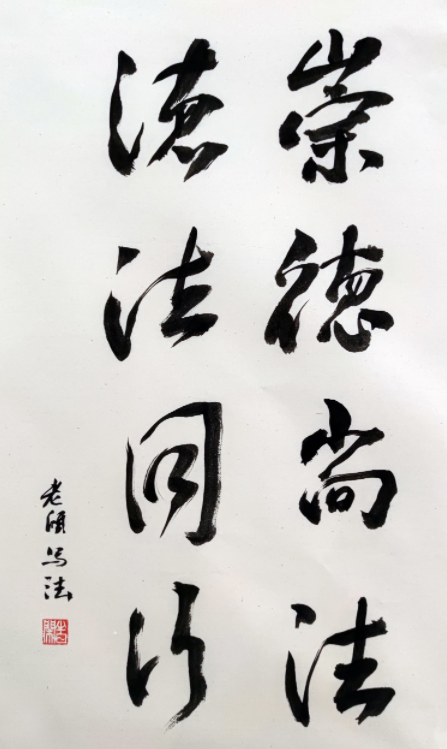 崇德尚法
德法同行
老顾写法